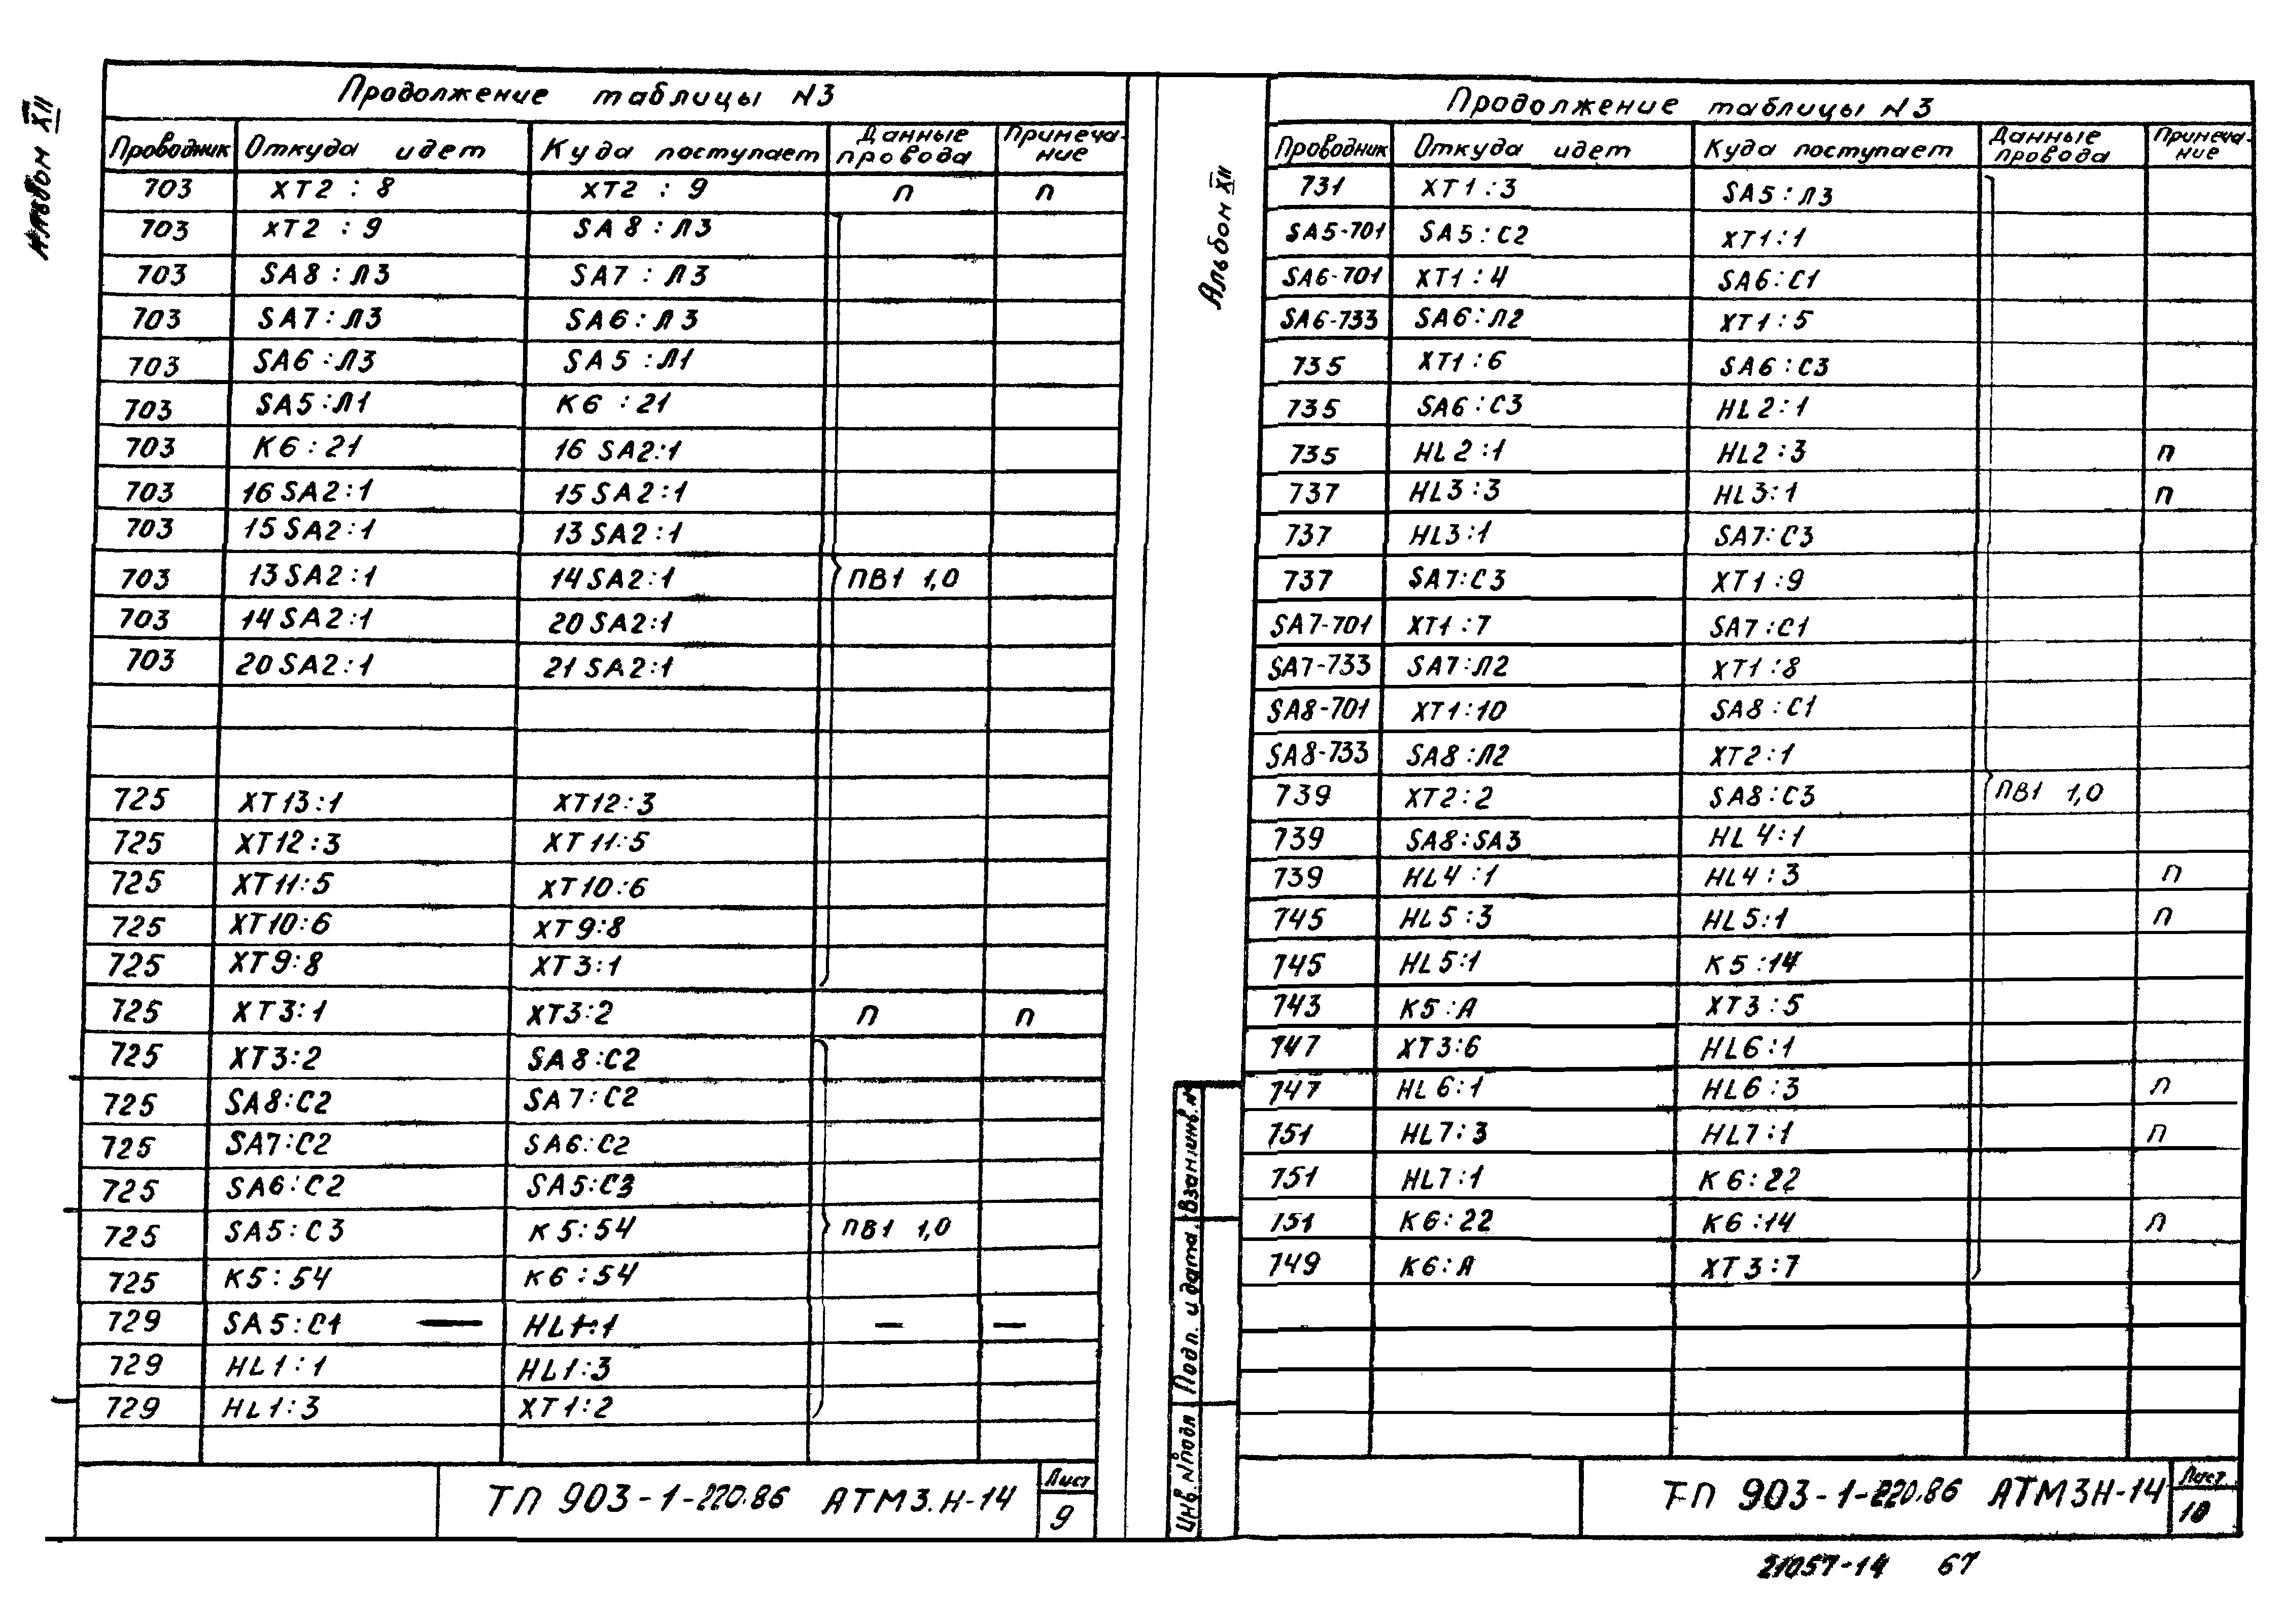 Альбом XII
Продолжение таблицы N3
Проводник Откуда идет Куда поступает Данные провода Примеча-ние
703 XT2 : 8 XT2 : 9 п п
703 XT2 : 9 SA8 : Л3
703 SA8 : Л3 SA7 : Л3
703 SA7 : Л3 SA6 : Л3
703 SA6 : Л3 SA5 : Л1
703 SA5 : Л1 K6 : 21
703 K6 : 21 16 SA2:1
703 16 SA2:1 15 SA2:1
703 15 SA2:1 13 SA2:1
703 13 SA2:1 14 SA2:1 ПВ1 1,0
703 14 SA2:1 20 SA2:1
703 20 SA2:1 21 SA2:1
725 XT13:1 XT12:3
725 XT12:3 XT11:5
725 XT11:5 XT10:6
725 XT10:6 XT9:8
725 XT9:8 XT3:1
725 XT3:1 XT3:2 п п
725 XT3:2 SA8:C2
725 SA8:C2 SA7:C2
725 SA7:C2 SA6:C2
725 SA6:C2 SA5:C3
725 SA5:C3 K5:54 ПВ1 1,0
725 K5:54 K6:54
729 SA5:C1 — HL1:1 — —
729 HL1:1 HL1:3
729 HL1:3 XT1:2
ТП 903-1-220.86 АТМ3.Н-14
Лист
9
Альбом XII
Продолжение таблицы N3
Проводник Откуда идет Куда поступает Данные провода Примеча-ние
731 XT1:3 SA5:Л3
SA5-701 SA5:C2 XT1:1
SA6-701 XT1:4 SA6:C1
SA6-733 SA6:Л2 XT1:5
735 XT1:6 SA6:C3
735 SA6:C3 HL2:1
735 HL2:1 HL2:3 п
737 HL3:3 HL3:1 п
737 HL3:1 SA7:C3
737 SA7:C3 XT1:9
SA7-701 XT1:7 SA7:C1
SA7-733 SA7:Л2 XT1:8
SA8-701 XT1:10 SA8:C1
SA8-733 SA8:Л2 XT2:1
739 XT2:2 SA8:C3 ПВ1 1,0
739 SA8:SA3 HL4:1
739 HL4:1 HL4:3 п
745 HL5:3 HL5:1 п
745 HL5:1 K5:14
743 K5:A XT3:5
747 XT3:6 HL6:1
747 HL6:1 HL6:3 п
751 HL7:3 HL7:1 п
751 HL7:1 K6:22
751 K6:22 K6:14 п
749 K6:A XT3:7
Взам.инв.N
Подп. и дата
Инв.N подл
ТП 903-1-220.86 АТМ3Н-14
Лист
10
21057-14 67